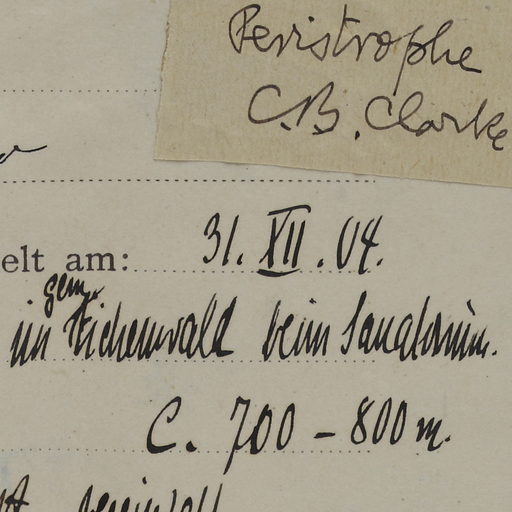 Peristrophe
C.B. Clarke
elt am: 31. XII. 04.
gem.
im Eichenwald beim Sanatorium.
C. 700 – 800 m.